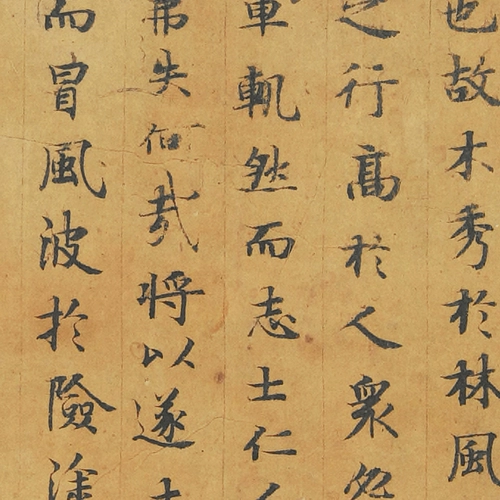 也故木秀於林風
之行高於人衆
車軌然而志士仁
弗失何哉將以遂
而冒風波於險塗